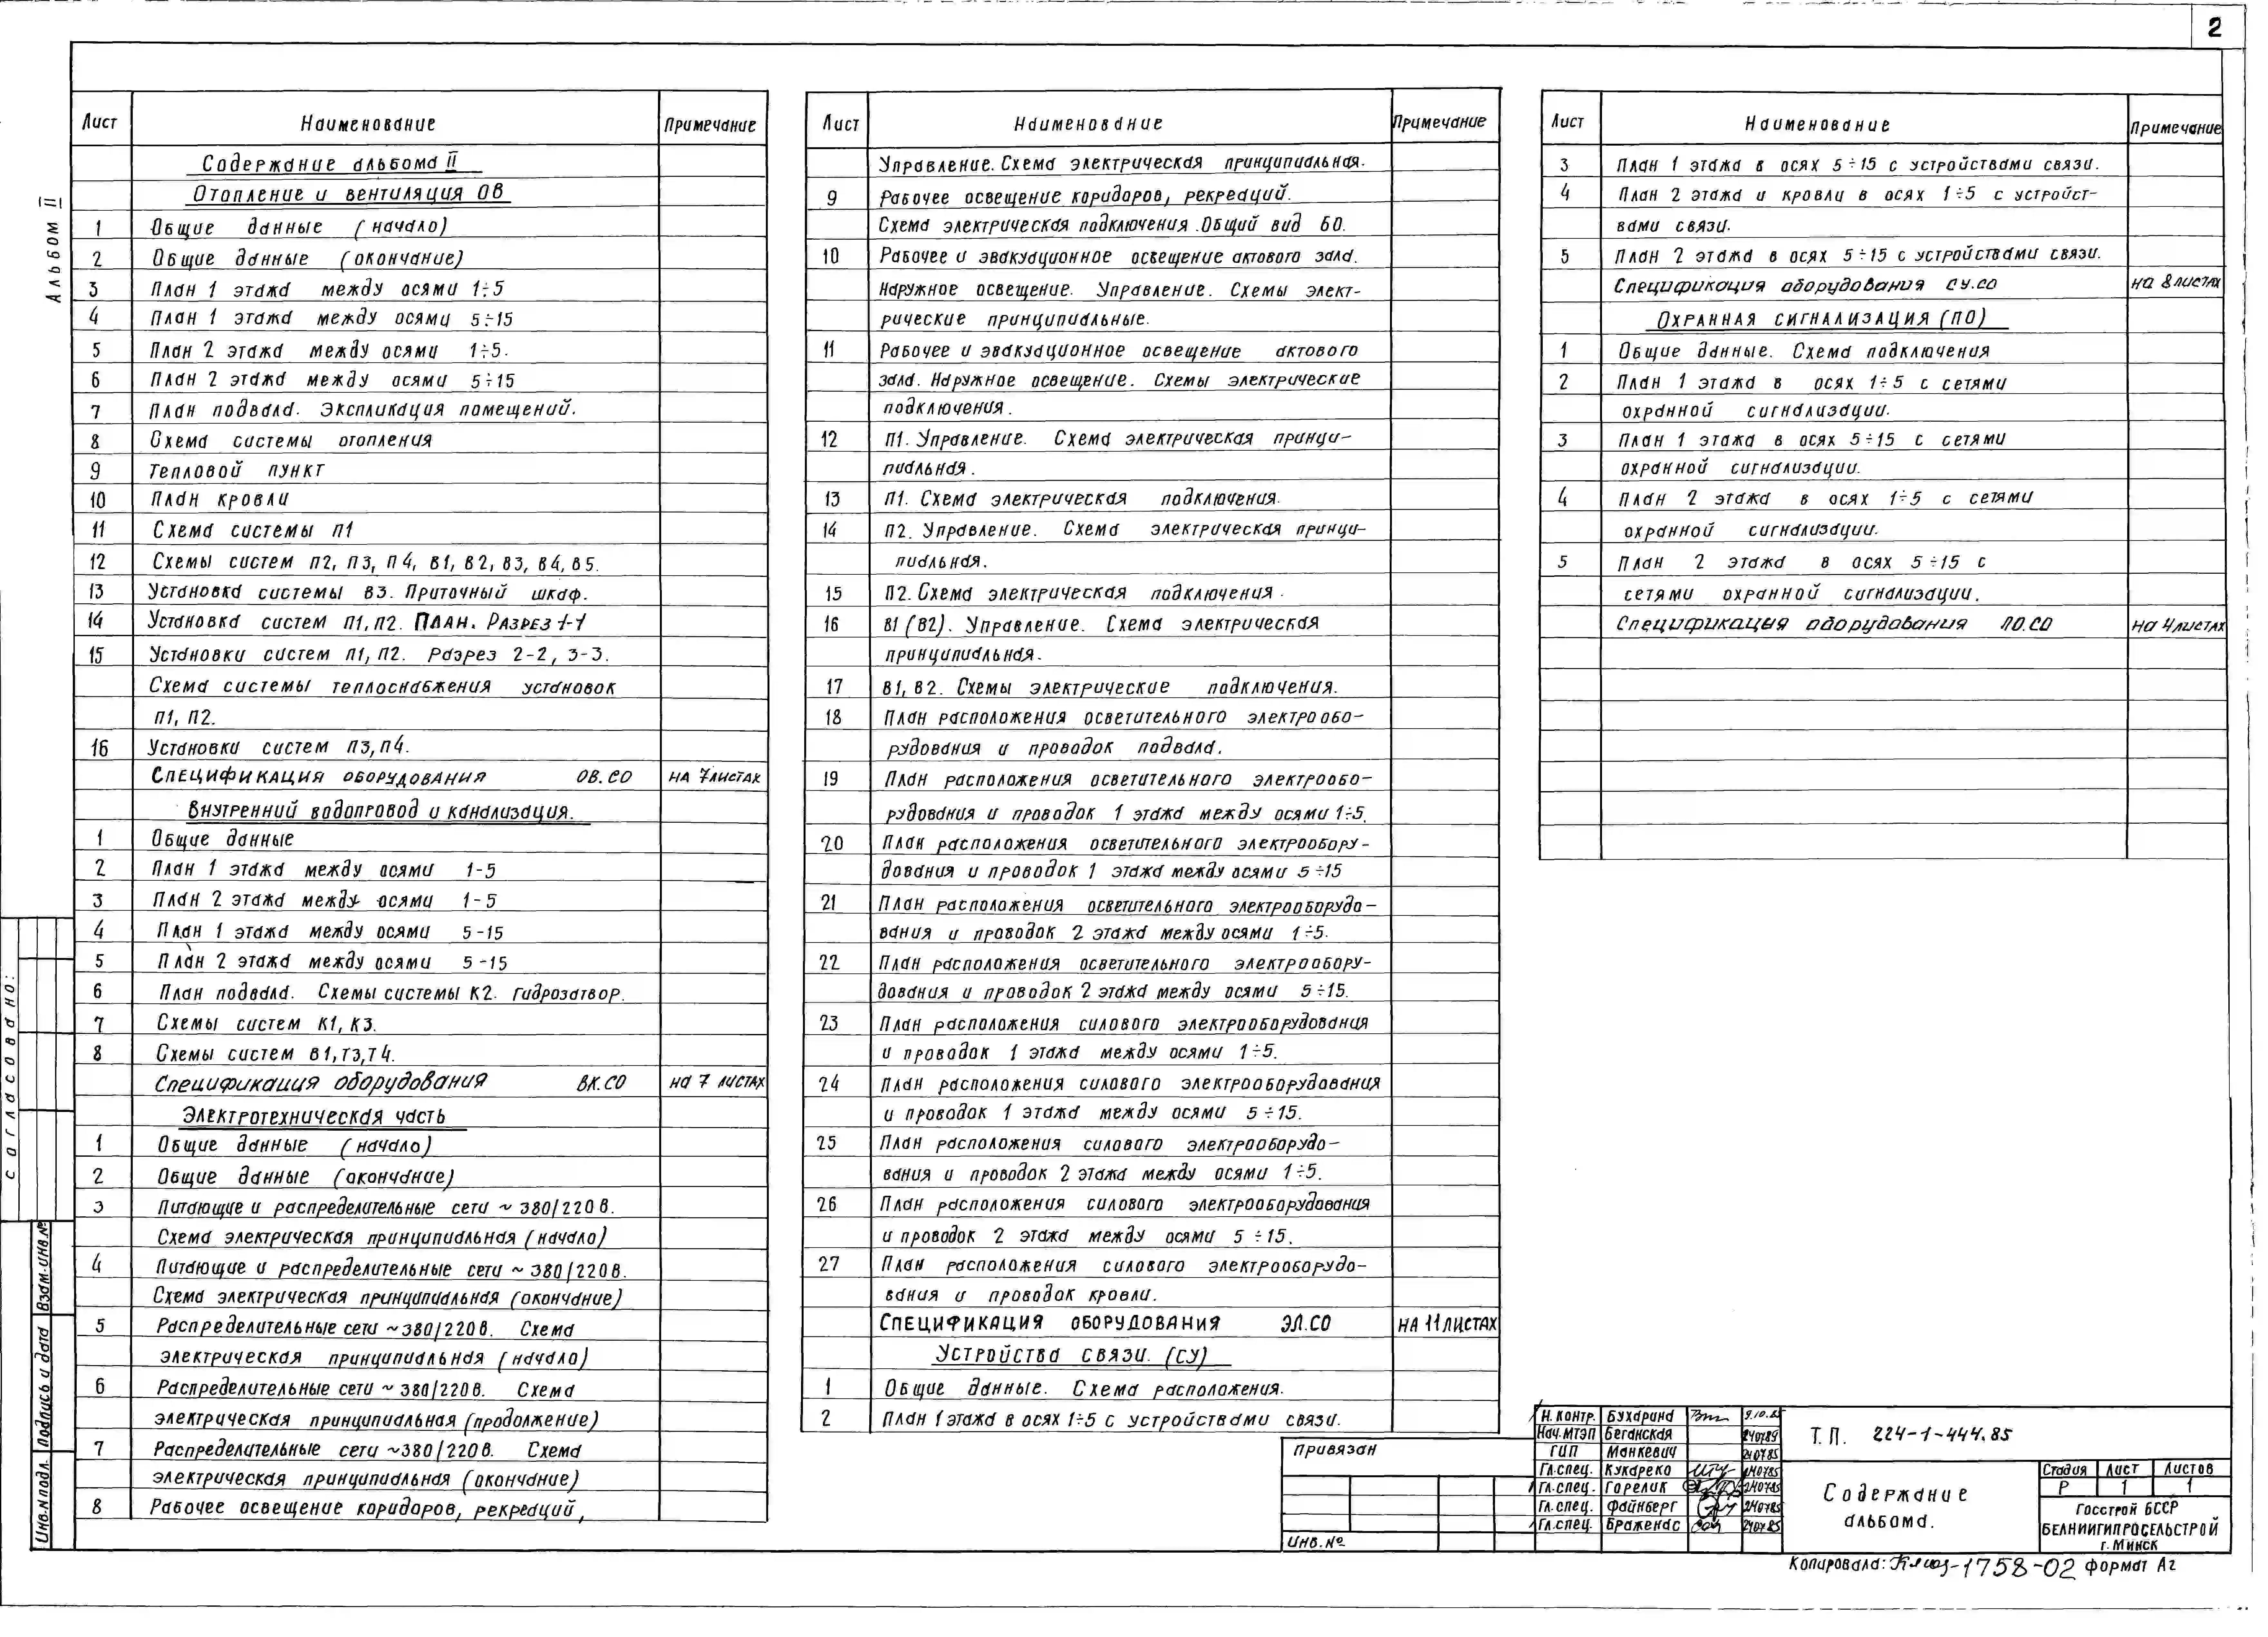 2
Альбом II
Лист Наименование Примечание
Содержание альбома II
Отопление и вентиляция ОВ
1 Общие данные (начало)
2 Общие данные (окончание)
3 План 1 этажа между осями 1÷5
4 План 1 этажа между осями 5÷15
5 План 2 этажа между осями 1÷5.
6 План 2 этажа между осями 5÷15
7 План подвала. Экспликация помещений.
8 Схема системы отопления
9 Тепловой пункт
10 План кровли
11 Схема системы П1
12 Схемы систем П2, П3, П4, В1, В2, В3, В4, В5.
13 Установка системы В3. Приточный шкаф.
14 Установка систем П1, П2. План. Разрез 1-1
15 Установки систем П1, П2. Разрез 2-2, 3-3.
Схема системы теплоснабжения установок
П1, П2.
16 Установки систем П3, П4.
Спецификация оборудования ОВ.СО на 7 листах
Внутренний водопровод и канализация.
1 Общие данные
2 План 1 этажа между осями 1-5
3 План 2 этажа между осями 1-5
4 План 1 этажа между осями 5-15
5 План 2 этажа между осями 5-15
6 План подвала. Схемы системы К2. Гидрозатвор.
7 Схемы систем К1, К3.
8 Схемы систем В1, Т3, Т4.
Спецификация оборудования ВК.СО на 7 листах
Электротехническая часть
1 Общие данные (начало)
2 Общие данные (окончание)
3 Питающие и распределительные сети ~ 380/220 В.
Схема электрическая принципиальная (начало)
4 Питающие и распределительные сети ~ 380/220 В.
Схема электрическая принципиальная (окончание)
5 Распределительные сети ~380/220 В. Схема
электрическая принципиальная (начало)
6 Распределительные сети ~ 380/220 В. Схема
электрическая принципиальная (продолжение)
7 Распределительные сети ~380/220 В. Схема
электрическая принципиальная (окончание)
8 Рабочее освещение коридоров, рекреаций,
Лист Наименование Примечание
Управление. Схема электрическая принципиальная.
9 Рабочее освещение коридоров, рекреаций.
Схема электрическая подключения. Общий вид БО.
10 Рабочее и эвакуационное освещение актового зала.
Наружное освещение. Управление. Схемы элект-
рические принципиальные.
11 Рабочее и эвакуационное освещение актового
зала. Наружное освещение. Схемы электрические
подключения.
12 П1. Управление. Схема электрическая принци-
пиальная.
13 П1. Схема электрическая подключения.
14 П2. Управление. Схема электрическая принци-
пиальная.
15 П2. Схема электрическая подключения.
16 В1 (В2). Управление. Схема электрическая
принципиальная.
17 В1, В2. Схемы электрические подключения.
18 План расположения осветительного электрообо-
рудования и проводок подвала.
19 План расположения осветительного электрообо-
рудования и проводок 1 этажа между осями 1÷5.
20 План расположения осветительного электрообору-
дования и проводок 1 этажа между осями 5÷15
21 План расположения осветительного электрооборудо-
вания и проводок 2 этажа между осями 1÷5.
22 План расположения осветительного электрообору-
дования и проводок 2 этажа между осями 5÷15.
23 План расположения силового электрооборудования
и проводок 1 этажа между осями 1÷5.
24 План расположения силового электрооборудования
и проводок 1 этажа между осями 5÷15.
25 План расположения силового электрооборудо-
вания и проводок 2 этажа между осями 1÷5.
26 План расположения силового электрооборудования
и проводок 2 этажа между осями 5÷15.
27 План расположения силового электрооборудо-
вания и проводок кровли.
Спецификация оборудования ЭЛ.СО на 11 листах
Устройства связи. (СУ)
1 Общие данные. Схема расположения.
2 План 1 этажа в осях 1÷5 с устройствами связи.
Лист Наименование Примечание
3 План 1 этажа в осях 5÷15 с устройствами связи.
4 План 2 этажа и кровли в осях 1÷5 с устройст-
вами связи.
5 План 2 этажа в осях 5÷15 с устройствами связи.
Спецификация оборудования СУ.СО на 8 листах
Охранная сигнализация (ПО)
1 Общие данные. Схема подключения
2 План 1 этажа в осях 1÷5 с сетями
охранной сигнализации.
3 План 1 этажа в осях 5÷15 с сетями
охранной сигнализации.
4 План 2 этажа в осях 1÷5 с сетями
охранной сигнализации.
5 План 2 этажа в осях 5÷15 с
сетями охранной сигнализации.
Спецификация оборудования ПО.СО на 4 листах
Согласовано:
Взам.инв.№
Подпись и дата
Инв.№подл.
Привязан
Инв.№
Н. контр. Бухарина 9.10.85
Нач.МТЭП Беганская 240785
ГИП Манкевич 240785
Гл.спец. Кукареко 240785
Гл.спец. Горелик 240785
Гл.спец. Файнберг 240785
Гл.спец. Браженас 240785
Т.П. 224-1-444.85
Содержание
альбома.
Стадия Лист Листов
Р 1 1
Госстрой БССР
БЕЛНИИГИПРОСЕЛЬСТРОЙ
г. Минск
Копировала: 1758-02 Формат А2